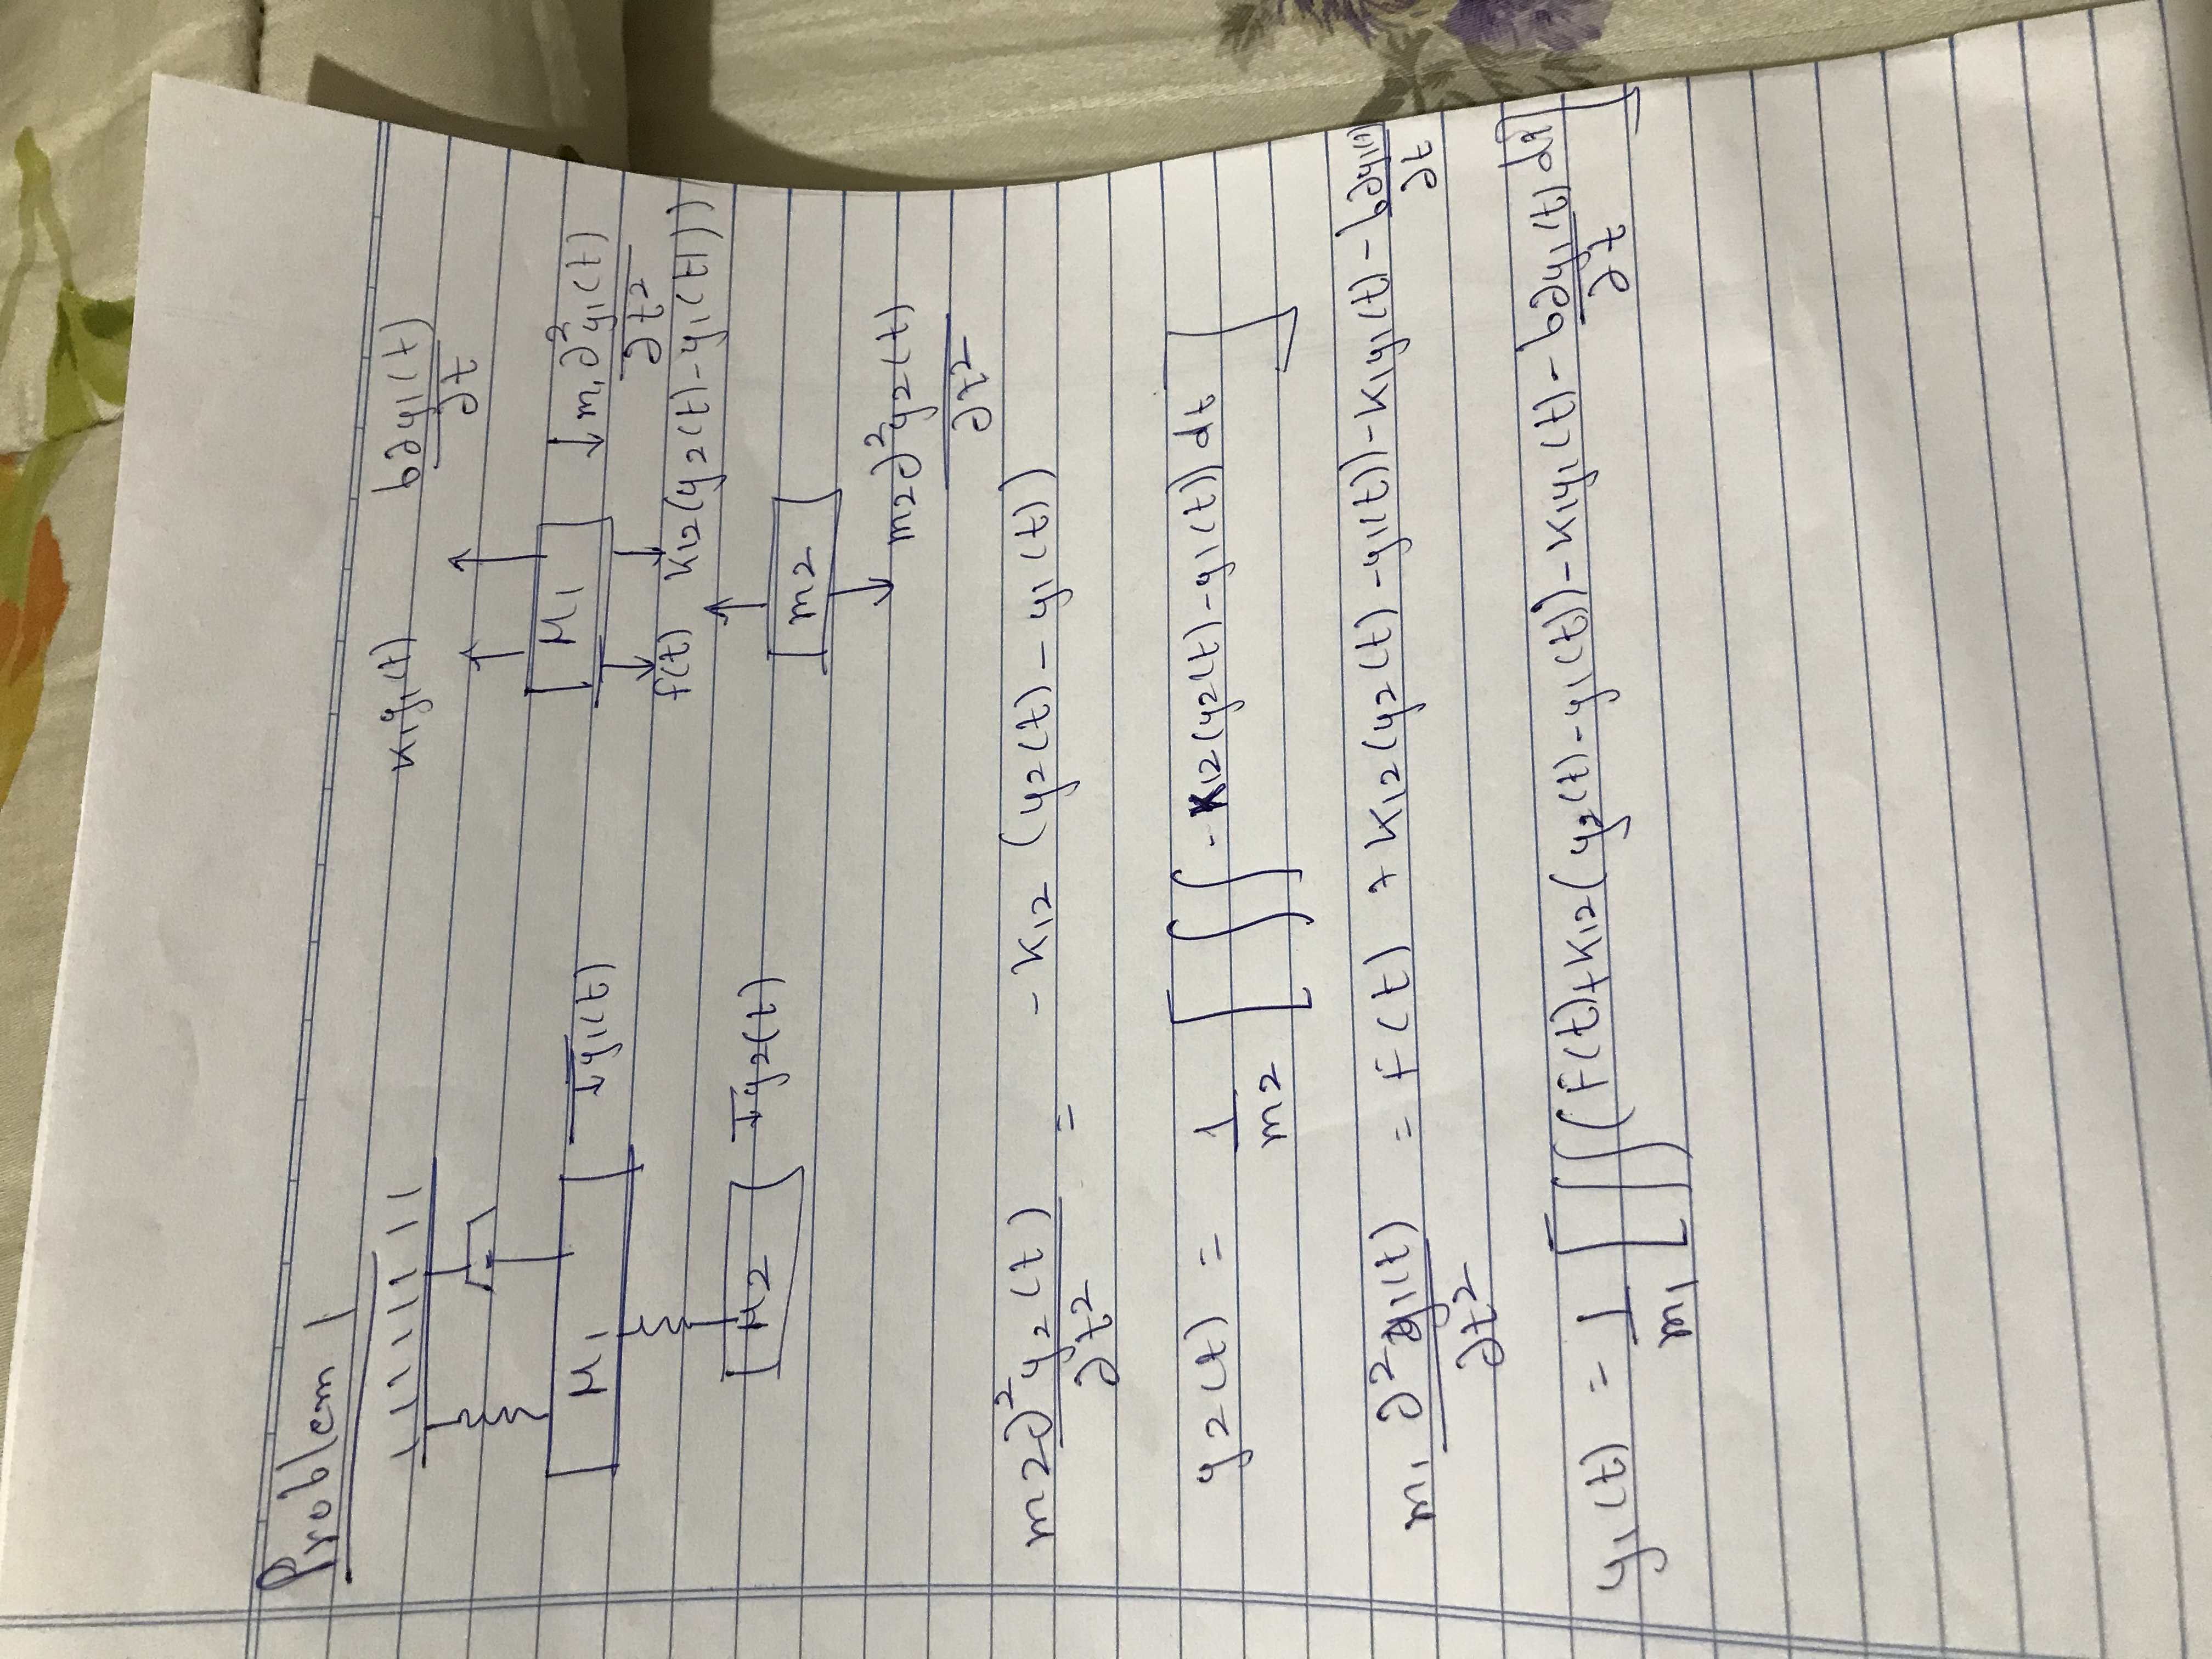 Problem 1
K₁y₁(t) b∂y₁(t)/∂t
M₁ ↓y₁(t) M₁ ↓ m₁∂²y₁(t)/∂t²
f(t) K₁₂(y₂(t)-y₁(t))
M2 ↓y₂(t) m2
m2∂²y2(t)/∂t²
m2∂²y₂(t)/∂t² = -K₁₂ (y₂(t) - y₁(t))
y2(t) = 1/m2 [∫∫ -K12(y2(t)-y1(t)) dt]
m₁ ∂²y₁(t)/∂t² = F(t) + K₁₂(y₂(t) -y₁(t)) - K₁y₁(t) - b∂y₁(t)/∂t
y₁(t) = 1/m₁ [∫∫(F(t)+K₁₂(y₂(t)-y₁(t))-K₁y₁(t) - b∂y₁(t)/∂t dt]